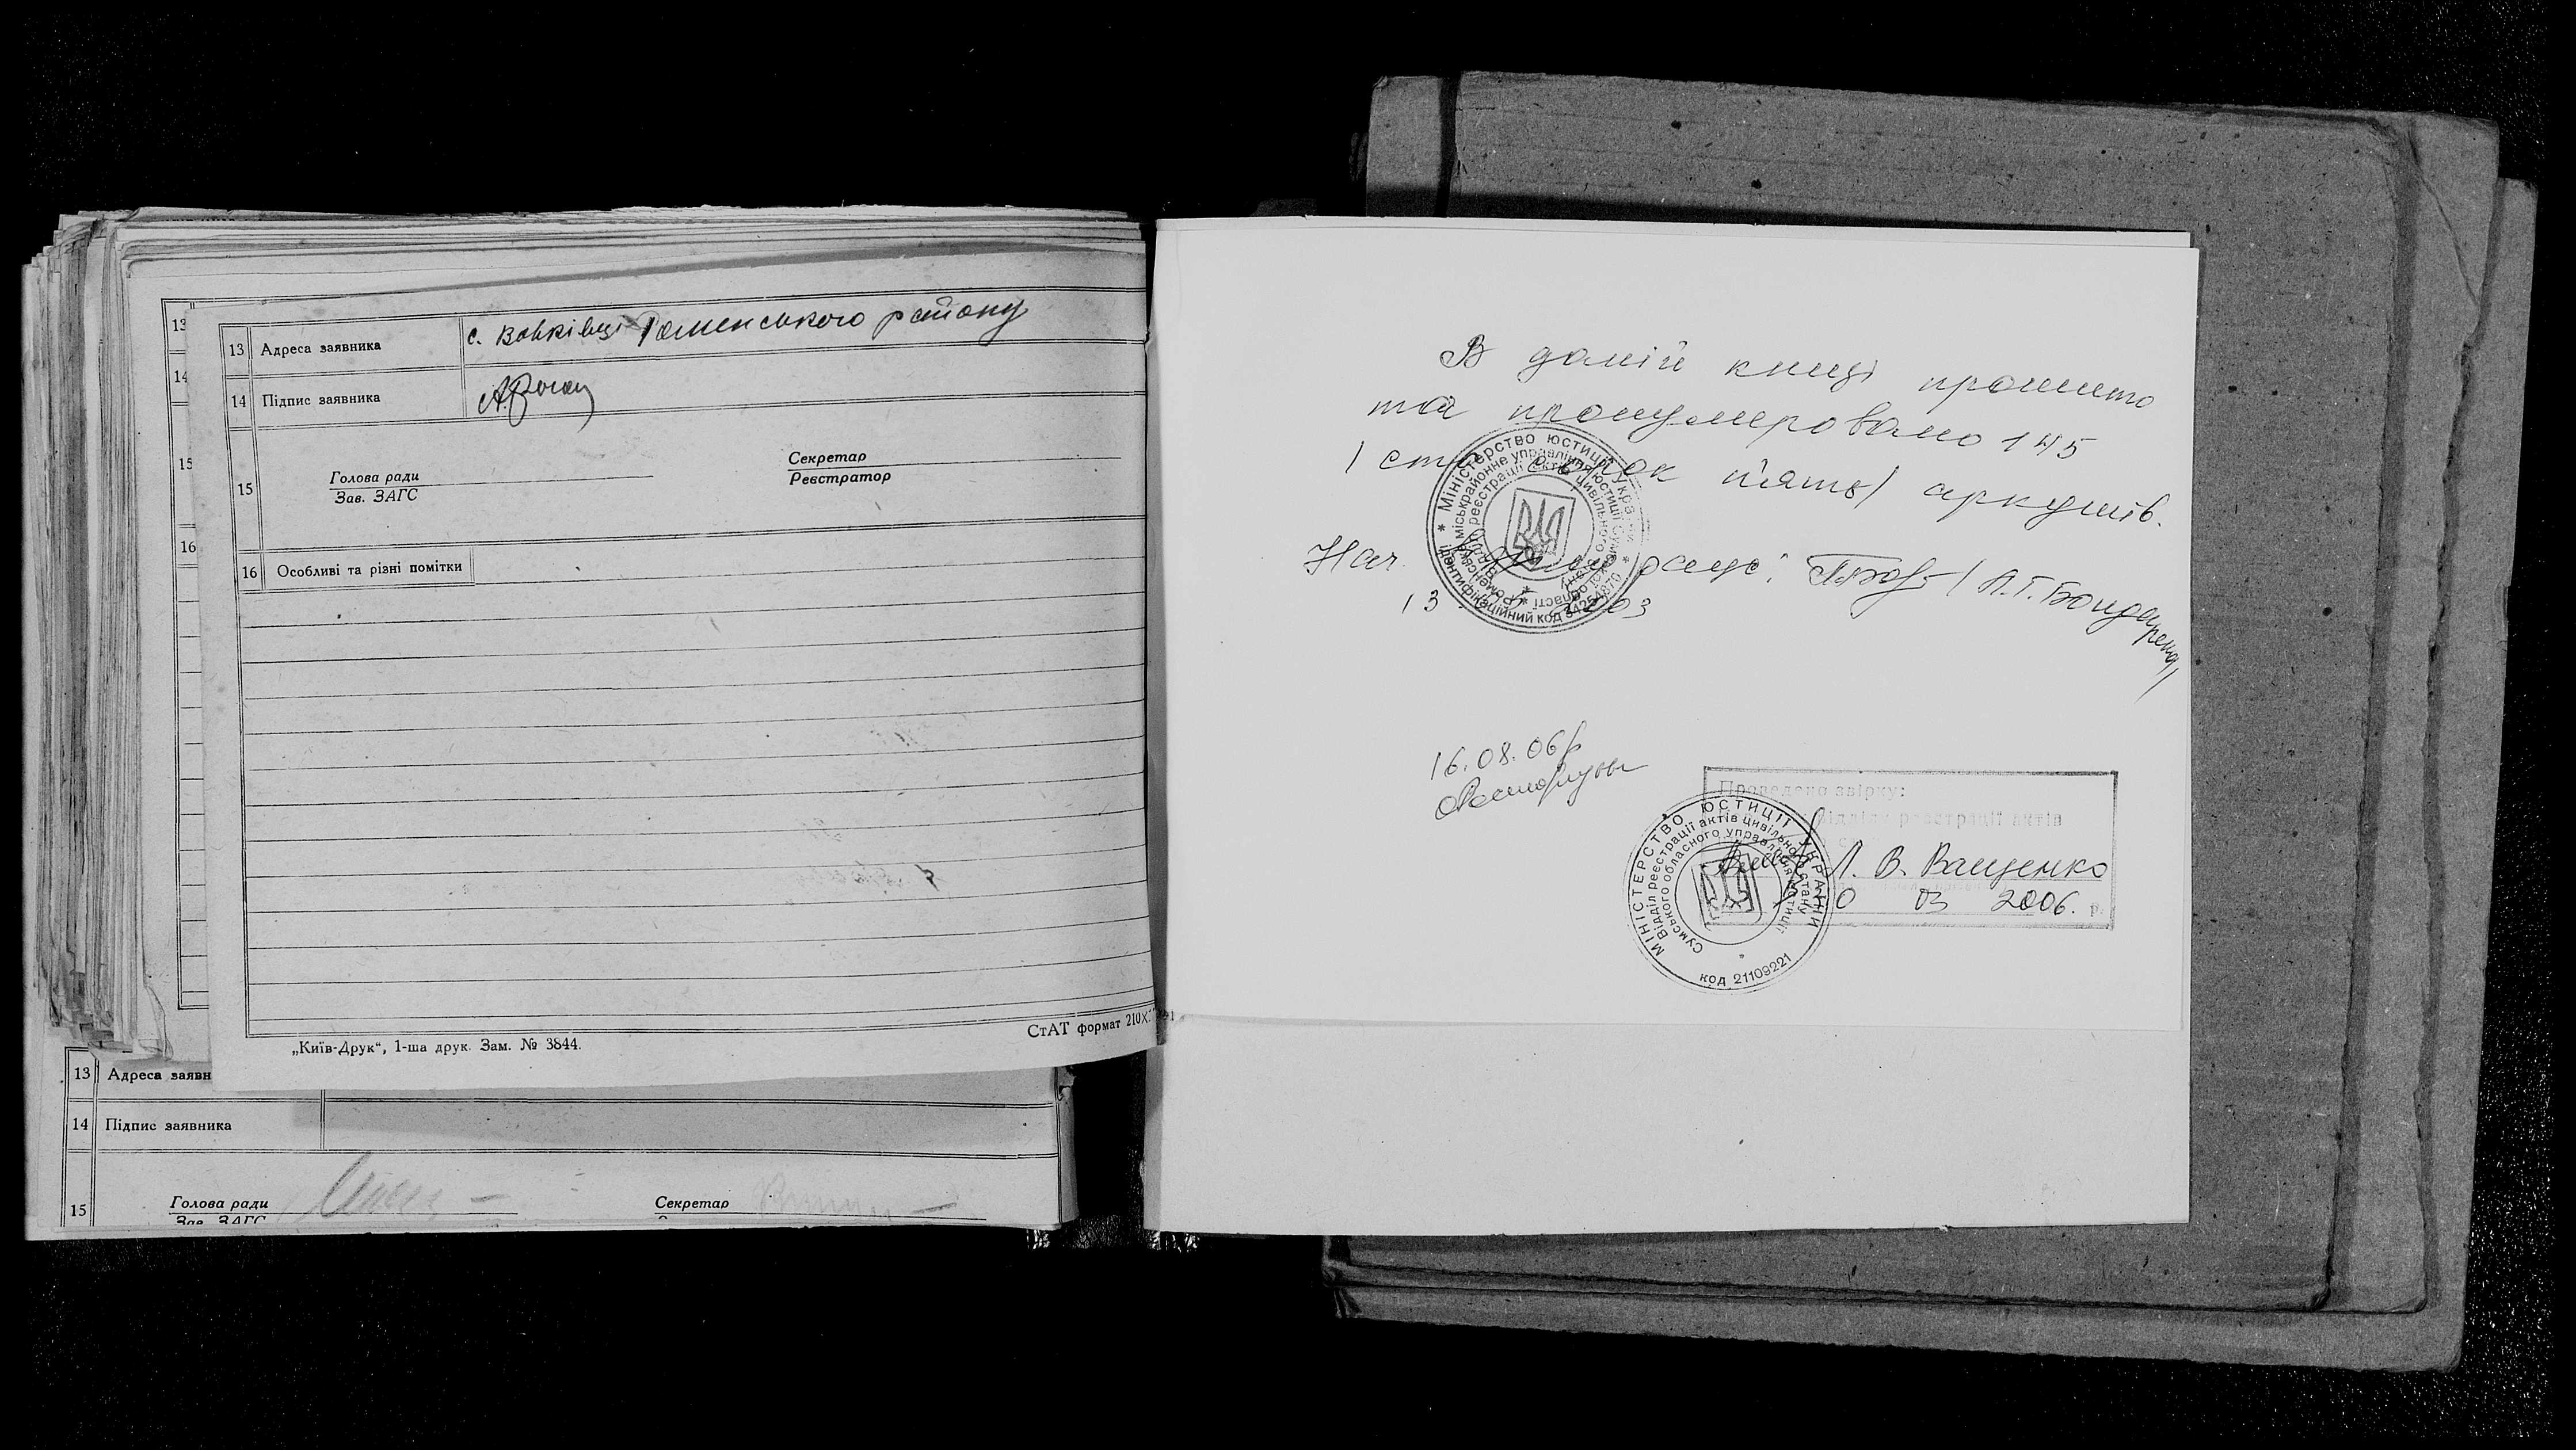 13
14
15
16
13 Адреса заявника с. Вовківці Роменського району
14 Підпис заявника
15 Голова ради Секретар
Зав. ЗАГС Реєстратор
16 Особливі та різні помітки
„Київ-Друк“, 1-ша друк. Зам. № 3844.
СтАТ формат 210х
13 Адреса заявн
14 Підпис заявника
15 Голова ради Секретар
Зав. ЗАГС
В даній книзі прошито
та пронумеровано 145
/ сто сорок п'ять/ аркушів.
Нач. /А.Г. Бондаренко/
13
Міністерство юстиції України
ідентифікаційний код 34254870
16.08.06р
Проведено звірку:
відділу реєстрації актів
Л. В. Ващенко
03 2006. р.
МІНІСТЕРСТВО ЮСТИЦІЇ УКРАЇНИ
Відділ реєстрації актів цивільного стану
Сумського обласного управління юстиції
код 21109221